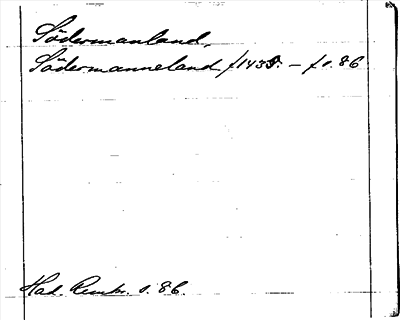 Södermanland,
Södermanneland f 1435. – f s. 86
Had. Rembr. s. 86.